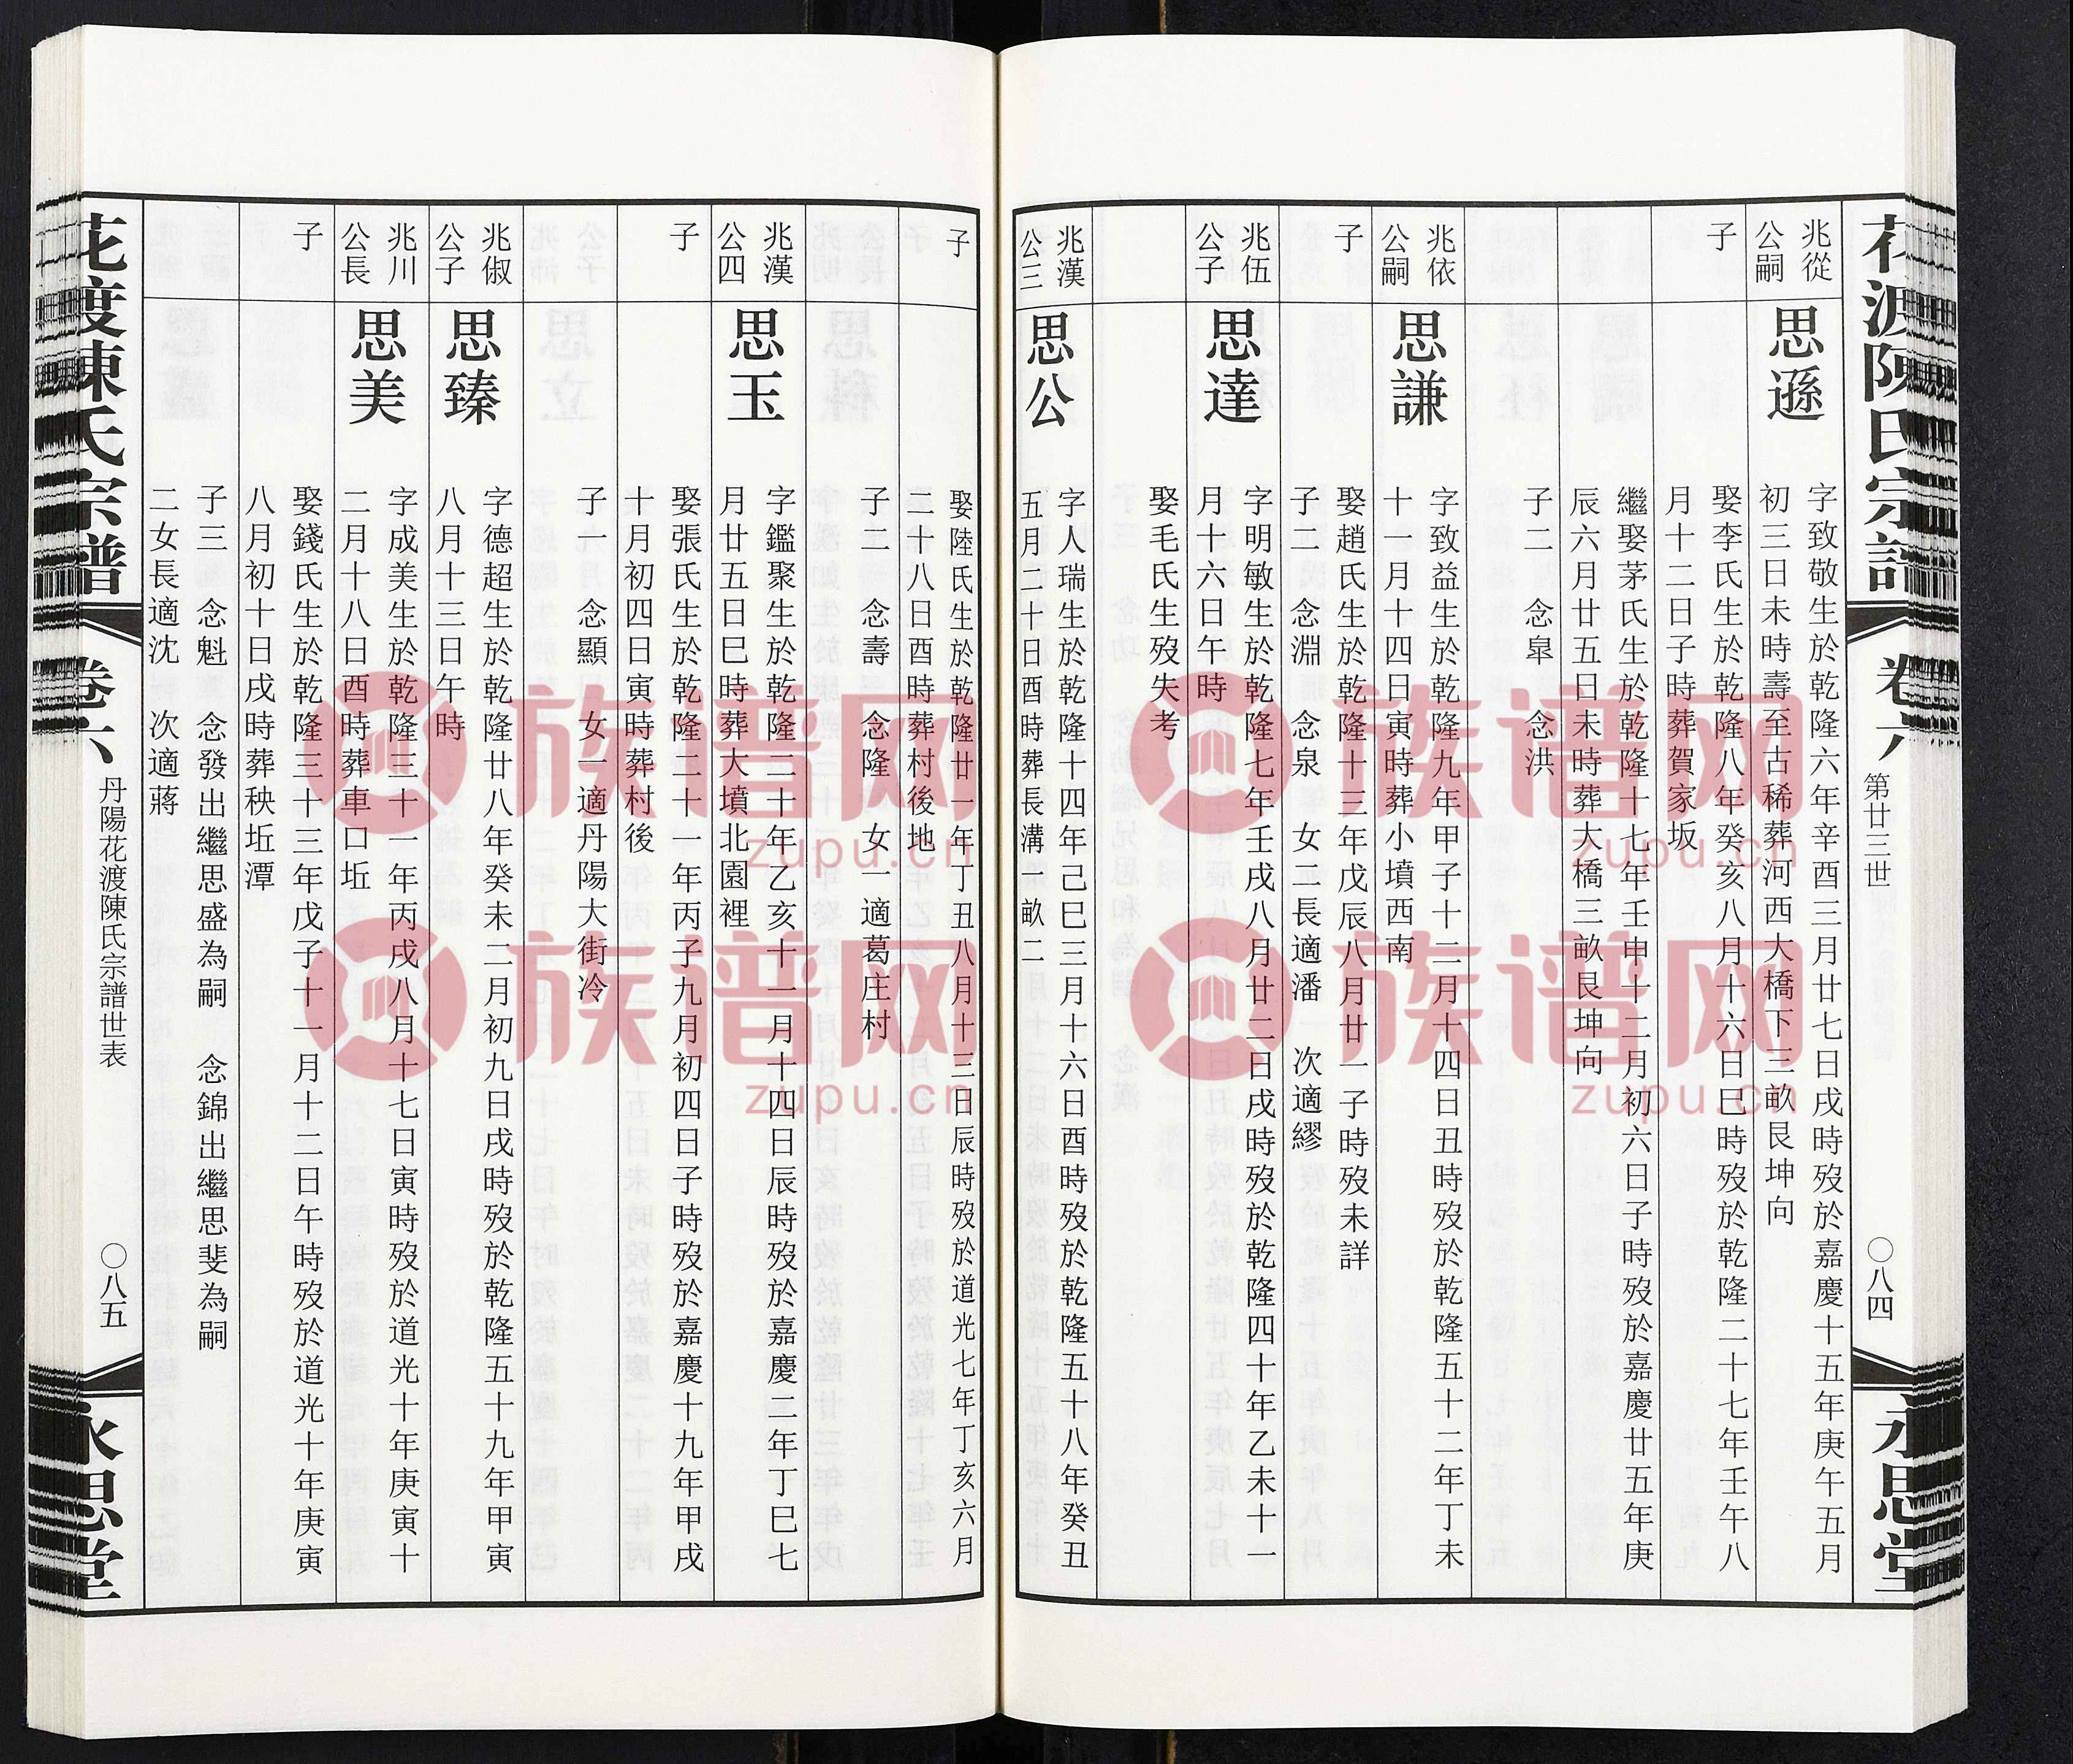 花渡陳氏宗譜
卷六
第廿三世
〇八四
永思堂
兆從
公嗣
子
思遜
字致敬生於乾隆六年辛酉三月廿七日戌時歿於嘉慶十五年庚午五月
初三日未時壽至古稀葬河西大橋下三畝艮坤向
娶李氏生於乾隆八年癸亥八月十六日巳時歿於乾隆二十七年壬午八
月十二日子時葬賀家坂
繼娶茅氏生於乾隆十七年壬申十二月初六日子時歿於嘉慶廿五年庚
辰六月廿五日未時葬大橋三畝艮坤向
子二　念皐　念洪
兆依
公嗣
子
思謙
字致益生於乾隆九年甲子十二月十四日丑時歿於乾隆五十二年丁未
十一月十四日寅時葬小墳西南
娶趙氏生於乾隆十三年戊辰八月廿一子時歿未詳
子二　念淵　念泉　女二長適潘　次適繆
兆伍
公子
思達
字明敏生於乾隆七年壬戌八月廿二日戌時歿於乾隆四十年乙未十一
月十六日午時
娶毛氏生歿失考
兆漢
公三
子
思公
字人瑞生於乾隆十四年己巳三月十六日酉時歿於乾隆五十八年癸丑
五月二十日酉時葬長溝一畝二
娶陸氏生於乾隆廿一年丁丑八月十三日辰時歿於道光七年丁亥六月
二十八日酉時葬村後地
子二　念壽　念隆　女一適葛庄村
兆漢
公四
子
思玉
字鑑聚生於乾隆二十年乙亥十一月十四日辰時歿於嘉慶二年丁巳七
月廿五日巳時葬大墳北園裡
娶張氏生於乾隆二十一年丙子九月初四日子時歿於嘉慶十九年甲戌
十月初四日寅時葬村後
子一　念顯　女一適丹陽大街冷
兆俶
公子
思臻
字德超生於乾隆廿八年癸未二月初九日戌時歿於乾隆五十九年甲寅
八月十三日午時
兆川
公長
子
思美
字成美生於乾隆三十一年丙戌八月十七日寅時歿於道光十年庚寅十
二月十八日酉時葬車口坵
娶錢氏生於乾隆三十三年戊子十一月十二日午時歿於道光十年庚寅
八月初十日戌時葬秧坵潭
子三　念魁　念發出繼思盛為嗣　念錦出繼思斐為嗣
二女長適沈　次適蔣
花渡陳氏宗譜
卷六
丹陽花渡陳氏宗譜世表
〇八五
永思堂
族谱网
zupu.cn
族谱网
zupu.cn
族谱网
zupu.cn
族谱网
zupu.cn